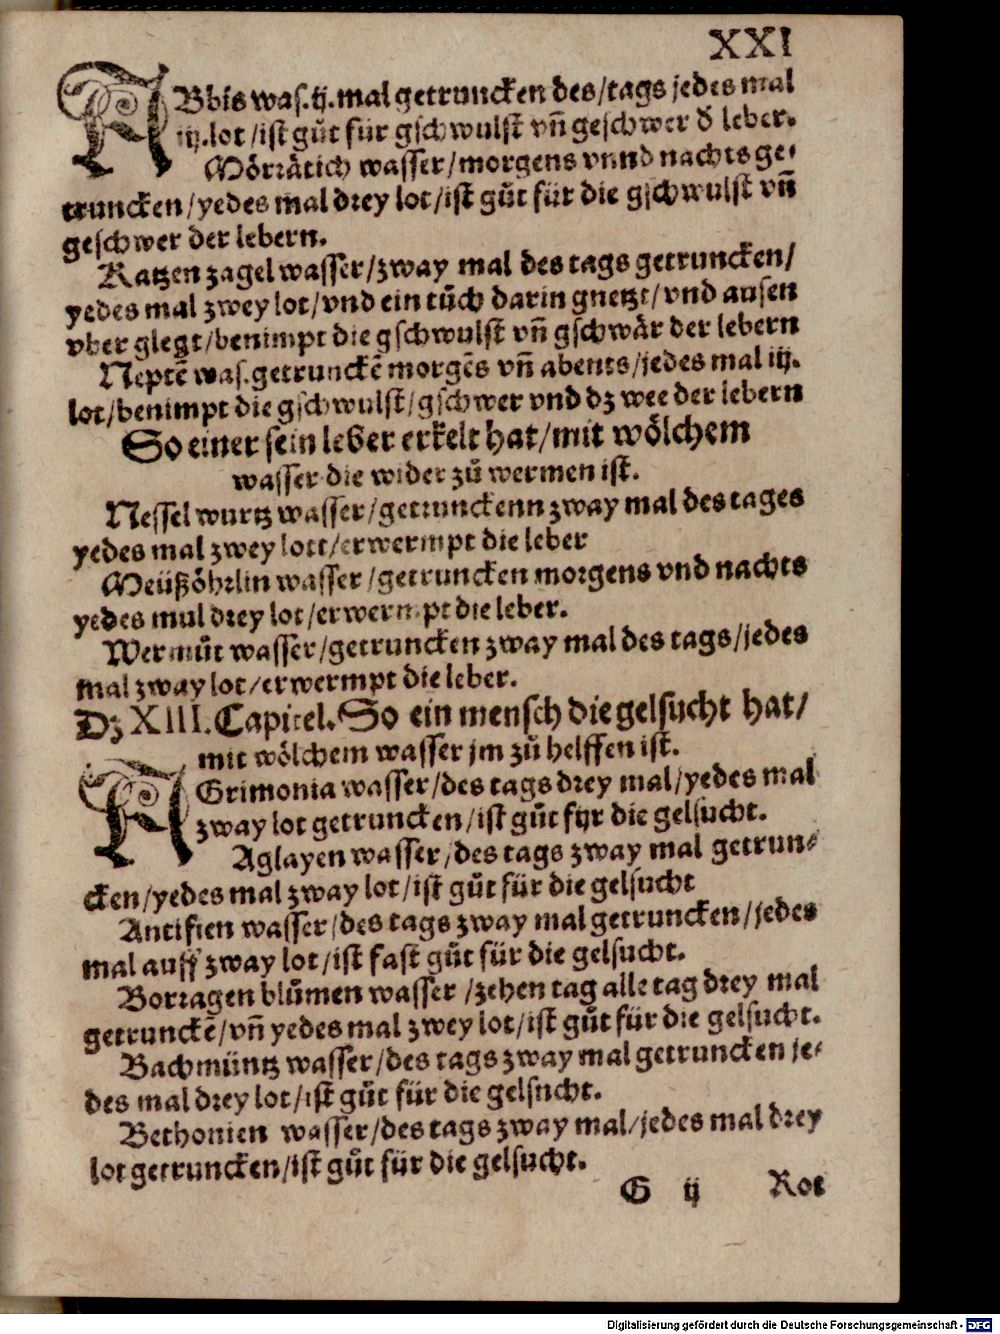 XXI
ABbis was.ij.mal getruncken des/tags jedes mal
iij.lot/ist gůt für gschwulst vñ geschwer d̄ leber.
Mörrätich wasser/morgens vnnd nachts ge-
truncken/yedes mal drey lot/ist gůt für die gschwulst vñ
geschwer der lebern.
Katzen zagel wasser/zway mal des tags getruncken/
yedes mal zwey lot/vnd ein tůch darin gnetzt/vnd ausen
vber glegt/benimpt die gschwulst vñ gschwär der lebern
Neptē was.getrunckē morgēs vñ abents/jedes mal iij.
lot/benimpt die gschwulst/gschwer vnd dz wee der lebern
So einer sein leber erkelt hat/mit wölchem
wasser die wider zů wermen ist.
Nessel wurtz wasser/getrunckenn zway mal des tages
yedes mal zwey lott/erwermpt die leber
Meüßöhrlin wasser/getruncken morgens vnd nachts
yedes mul drey lot/erwermpt die leber.
Wermůt wasser/getruncken zway mal des tags/jedes
mal zway lot/erwermpt die leber.
Dz XIII.Capitel.So ein mensch die gelsucht hat/
mit wölchem wasser jm zů helffen ist.
AGrimonia wasser/des tags drey mal/yedes mal
zway lot getruncken/ist gůt fijr die gelsucht.
Aglayen wasser/des tags zway mal getrun-
cken/yedes mal zway lot/ist gůt für die gelsucht
Antifien wasser/des tags zway mal getruncken/jedes
mal auff zway lot/ist fast gůt für die gelsucht.
Borragen blůmen wasser/zehen tag alle tag drey mal
getrunckē/vñ yedes mal zwey lot/ist gůt für die gelsucht.
Bachmüntz wasser/des tags zway mal getruncken je-
des mal drey lot/ist gůt für die gelsucht.
Bethonien wasser/des tags zway mal/jedes mal drey
lot getruncken/ist gůt für die gelsucht.
G ij Rot
Digitalisierung gefördert durch die Deutsche Forschungsgemeinschaft - DFG